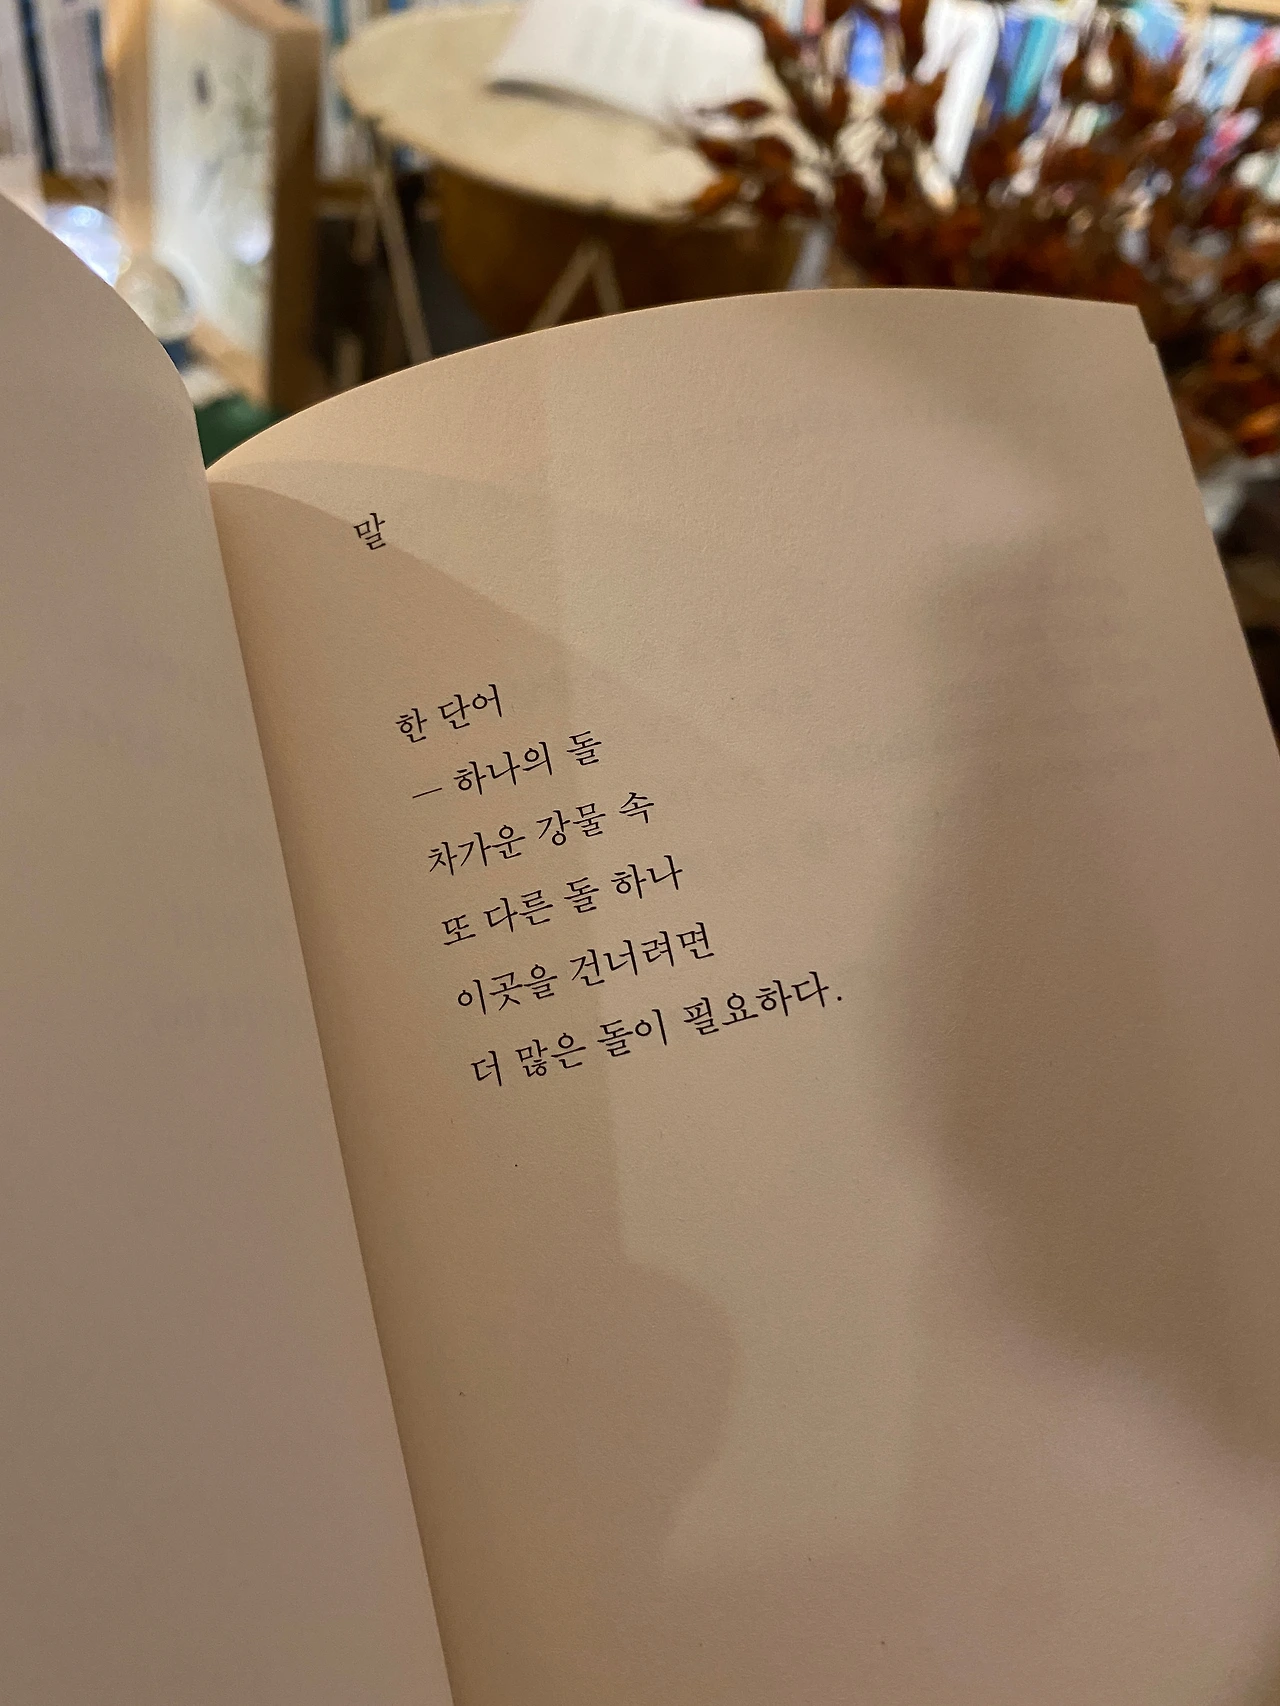 말
한 단어
— 하나의 돌
차가운 강물 속
또 다른 돌 하나
이곳을 건너려면
더 많은 돌이 필요하다.